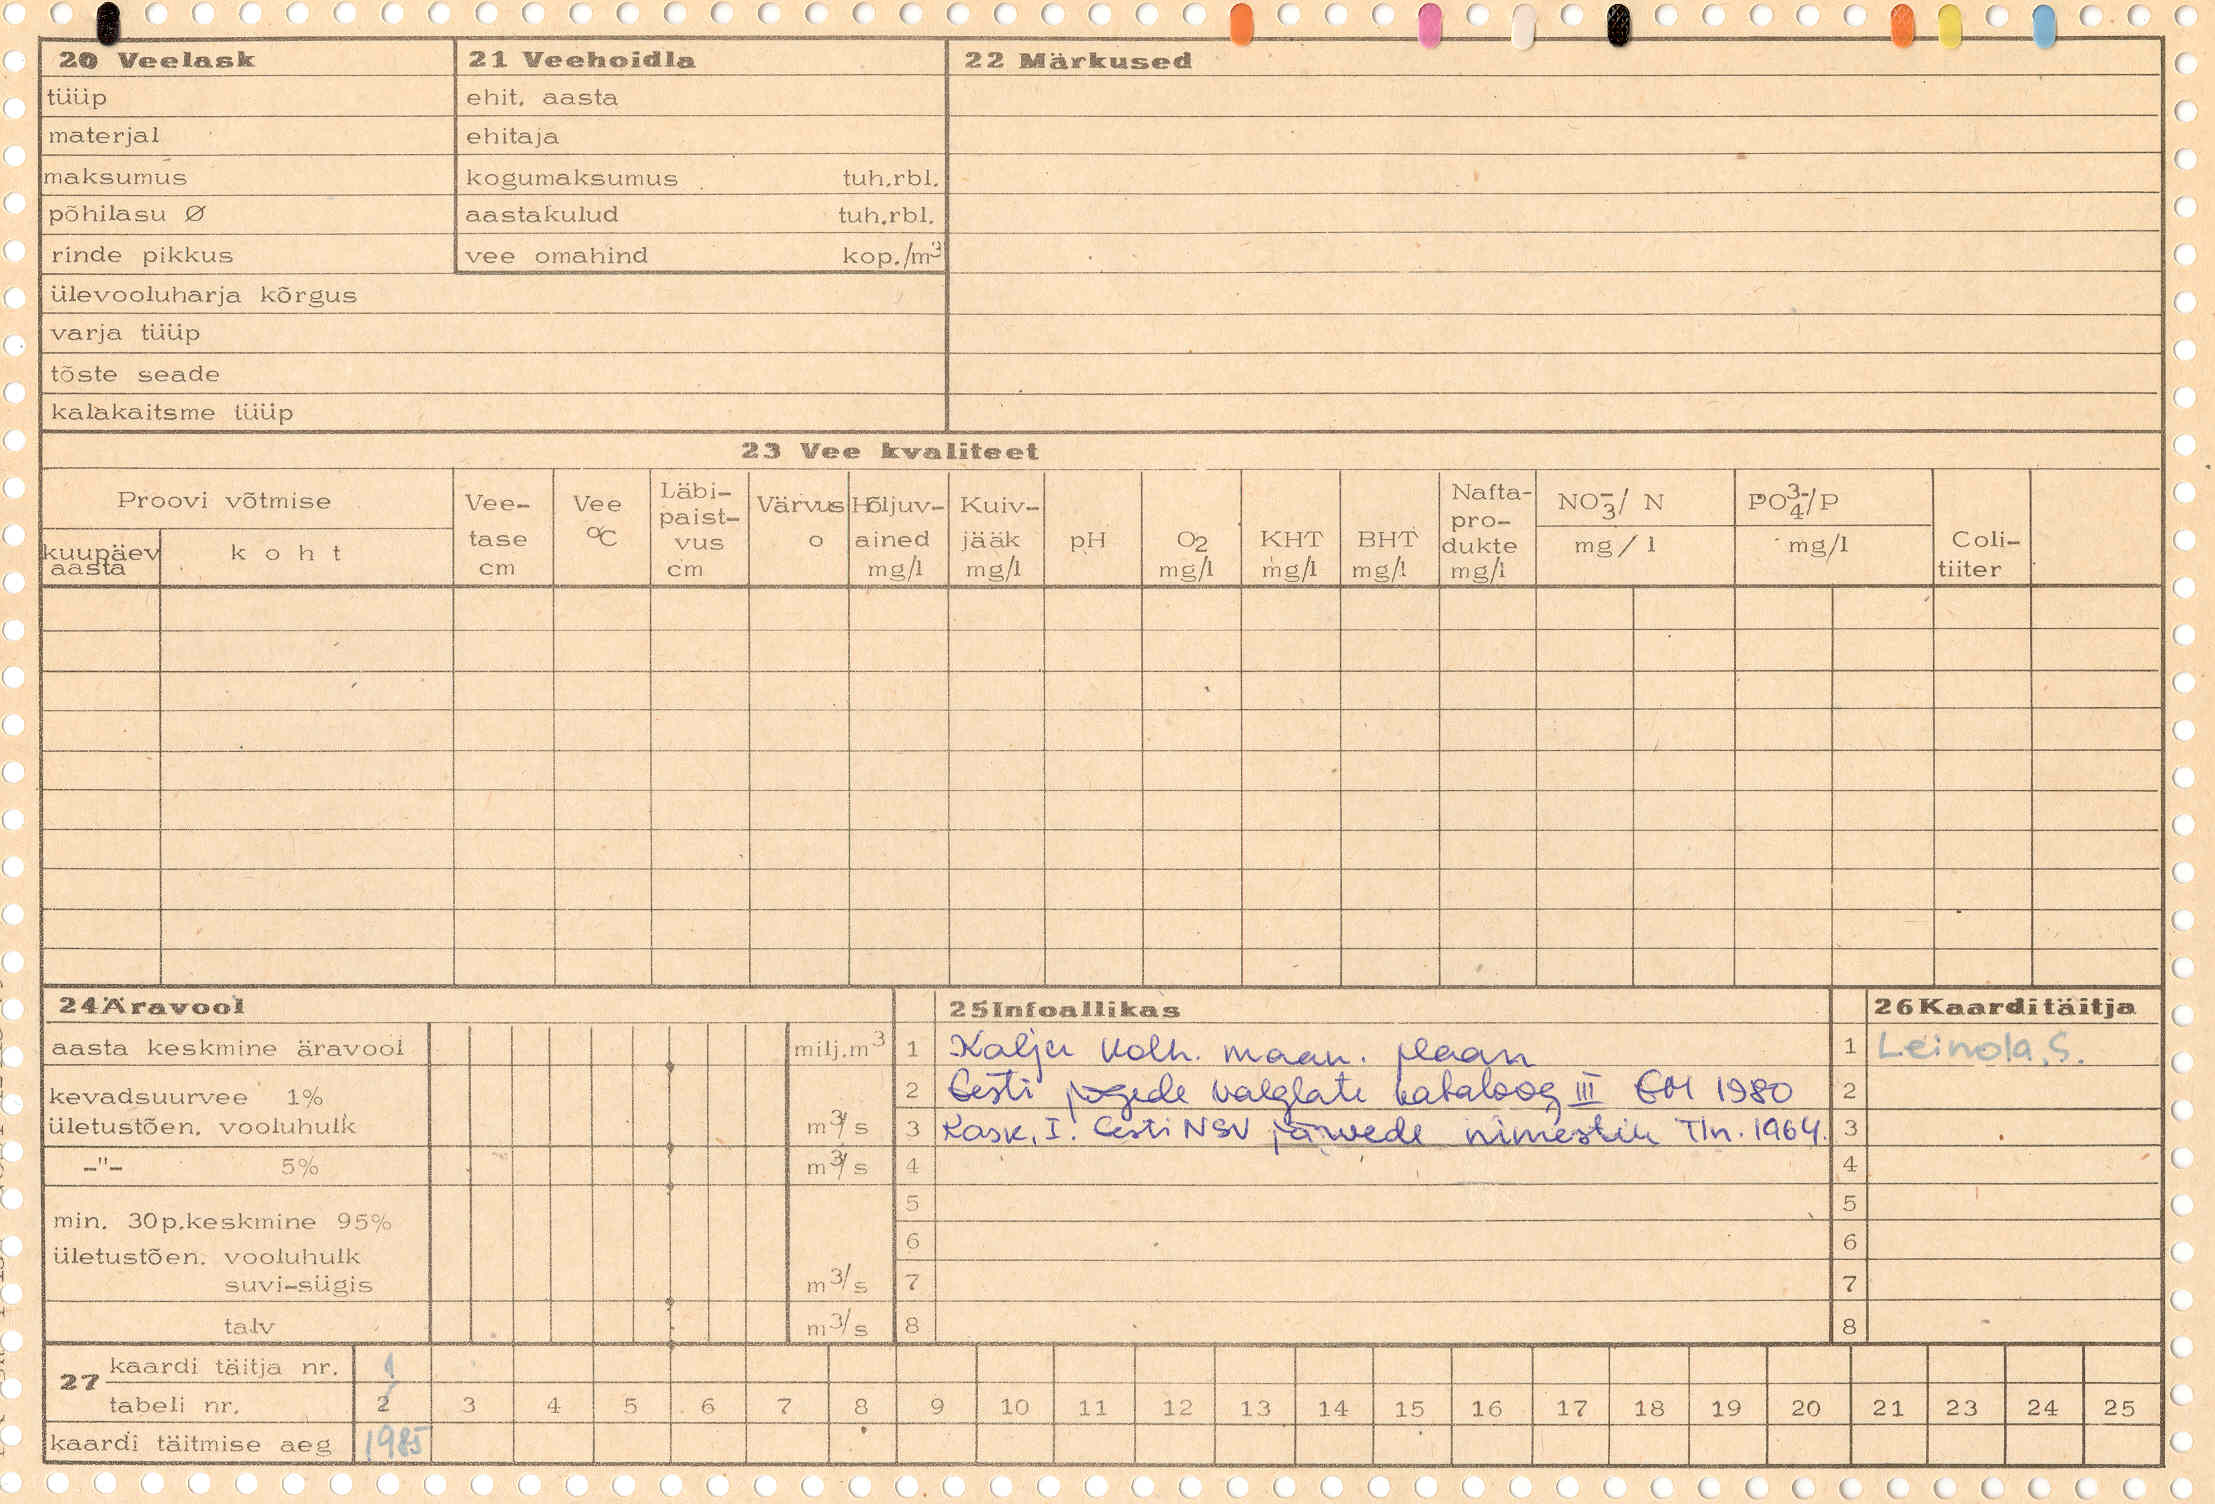 20 Veelask
tüüp
materjal
maksumus
põhilasu Ø
rinde pikkus
ülevooluharja kõrgus
varja tüüp
tõste seade
kalakaitsme tüüp
21 Veehoidla
ehit. aasta
ehitaja
kogumaksumus tuh.rbl.
aastakulud tuh.rbl.
vee omahind kop./m³
22 Märkused
23 Vee kvaliteet
Proovi võtmise
kuupäev aasta
koht
Vee-tase cm
Vee °C
Läbi-paist-vus cm
Värvus o
Hõljuv-ained mg/l
Kuiv-jääk mg/l
pH
O₂ mg/l
KHT mg/l
BHT mg/l
Nafta-pro-dukte mg/l
NO₃⁻/ N mg/l
PO₄³⁻/P mg/l
Coli-tiiter
24 Äravool
aasta keskmine äravool milj.m³
kevadsuurvee 1%
ületustõen. vooluhulk m³/s
-"- 5% m³/s
min. 30p.keskmine 95%
ületustõen. vooluhulk
suvi-sügis m³/s
talv m³/s
25 Infoallikas
1 Kalju kolh. maan. plaan
2 Eesti jõgede valglate kataloog III EM 1980
3 Kask, I. Eesti NSV järvede nimestik Tln. 1964.
4
5
6
7
8
26 Kaarditäitja
1 Leinola, S.
2
3
4
5
6
7
8
27
kaardi täitja nr. 1
tabeli nr. 2 3 4 5 6 7 8 9 10 11 12 13 14 15 16 17 18 19 20 21 23 24 25
kaardi täitmise aeg 1985